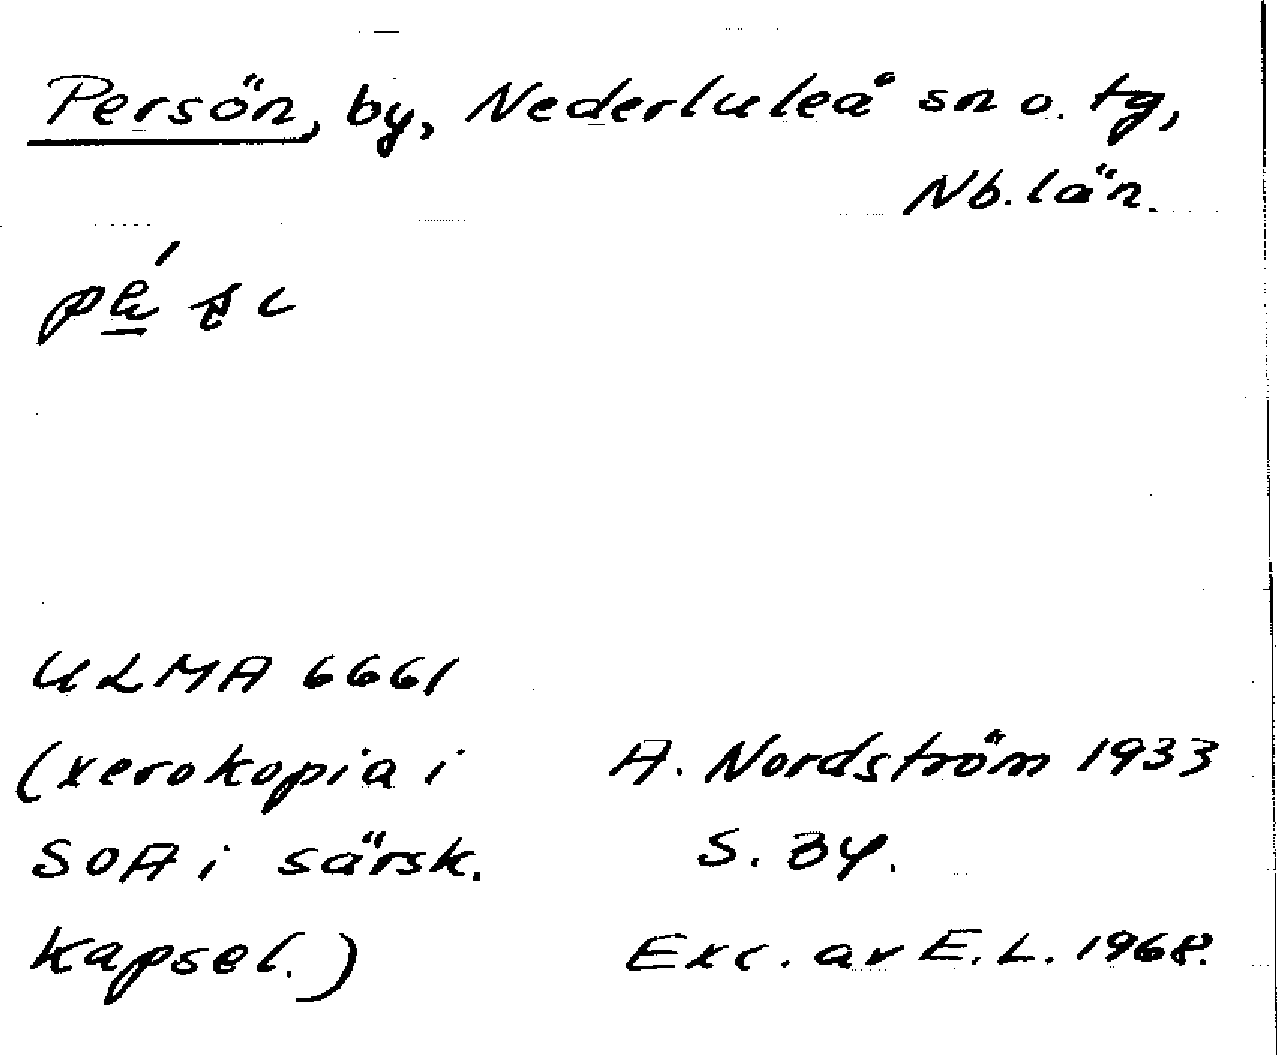 Persön, by, Nederluleå sn o. tg,
Nb. län.
ULMA 6661
(xerokopia i
SOA i särsk.
kapsel.)
A. Nordström 1933
S. 34.
Exc. av E.L. 1968.